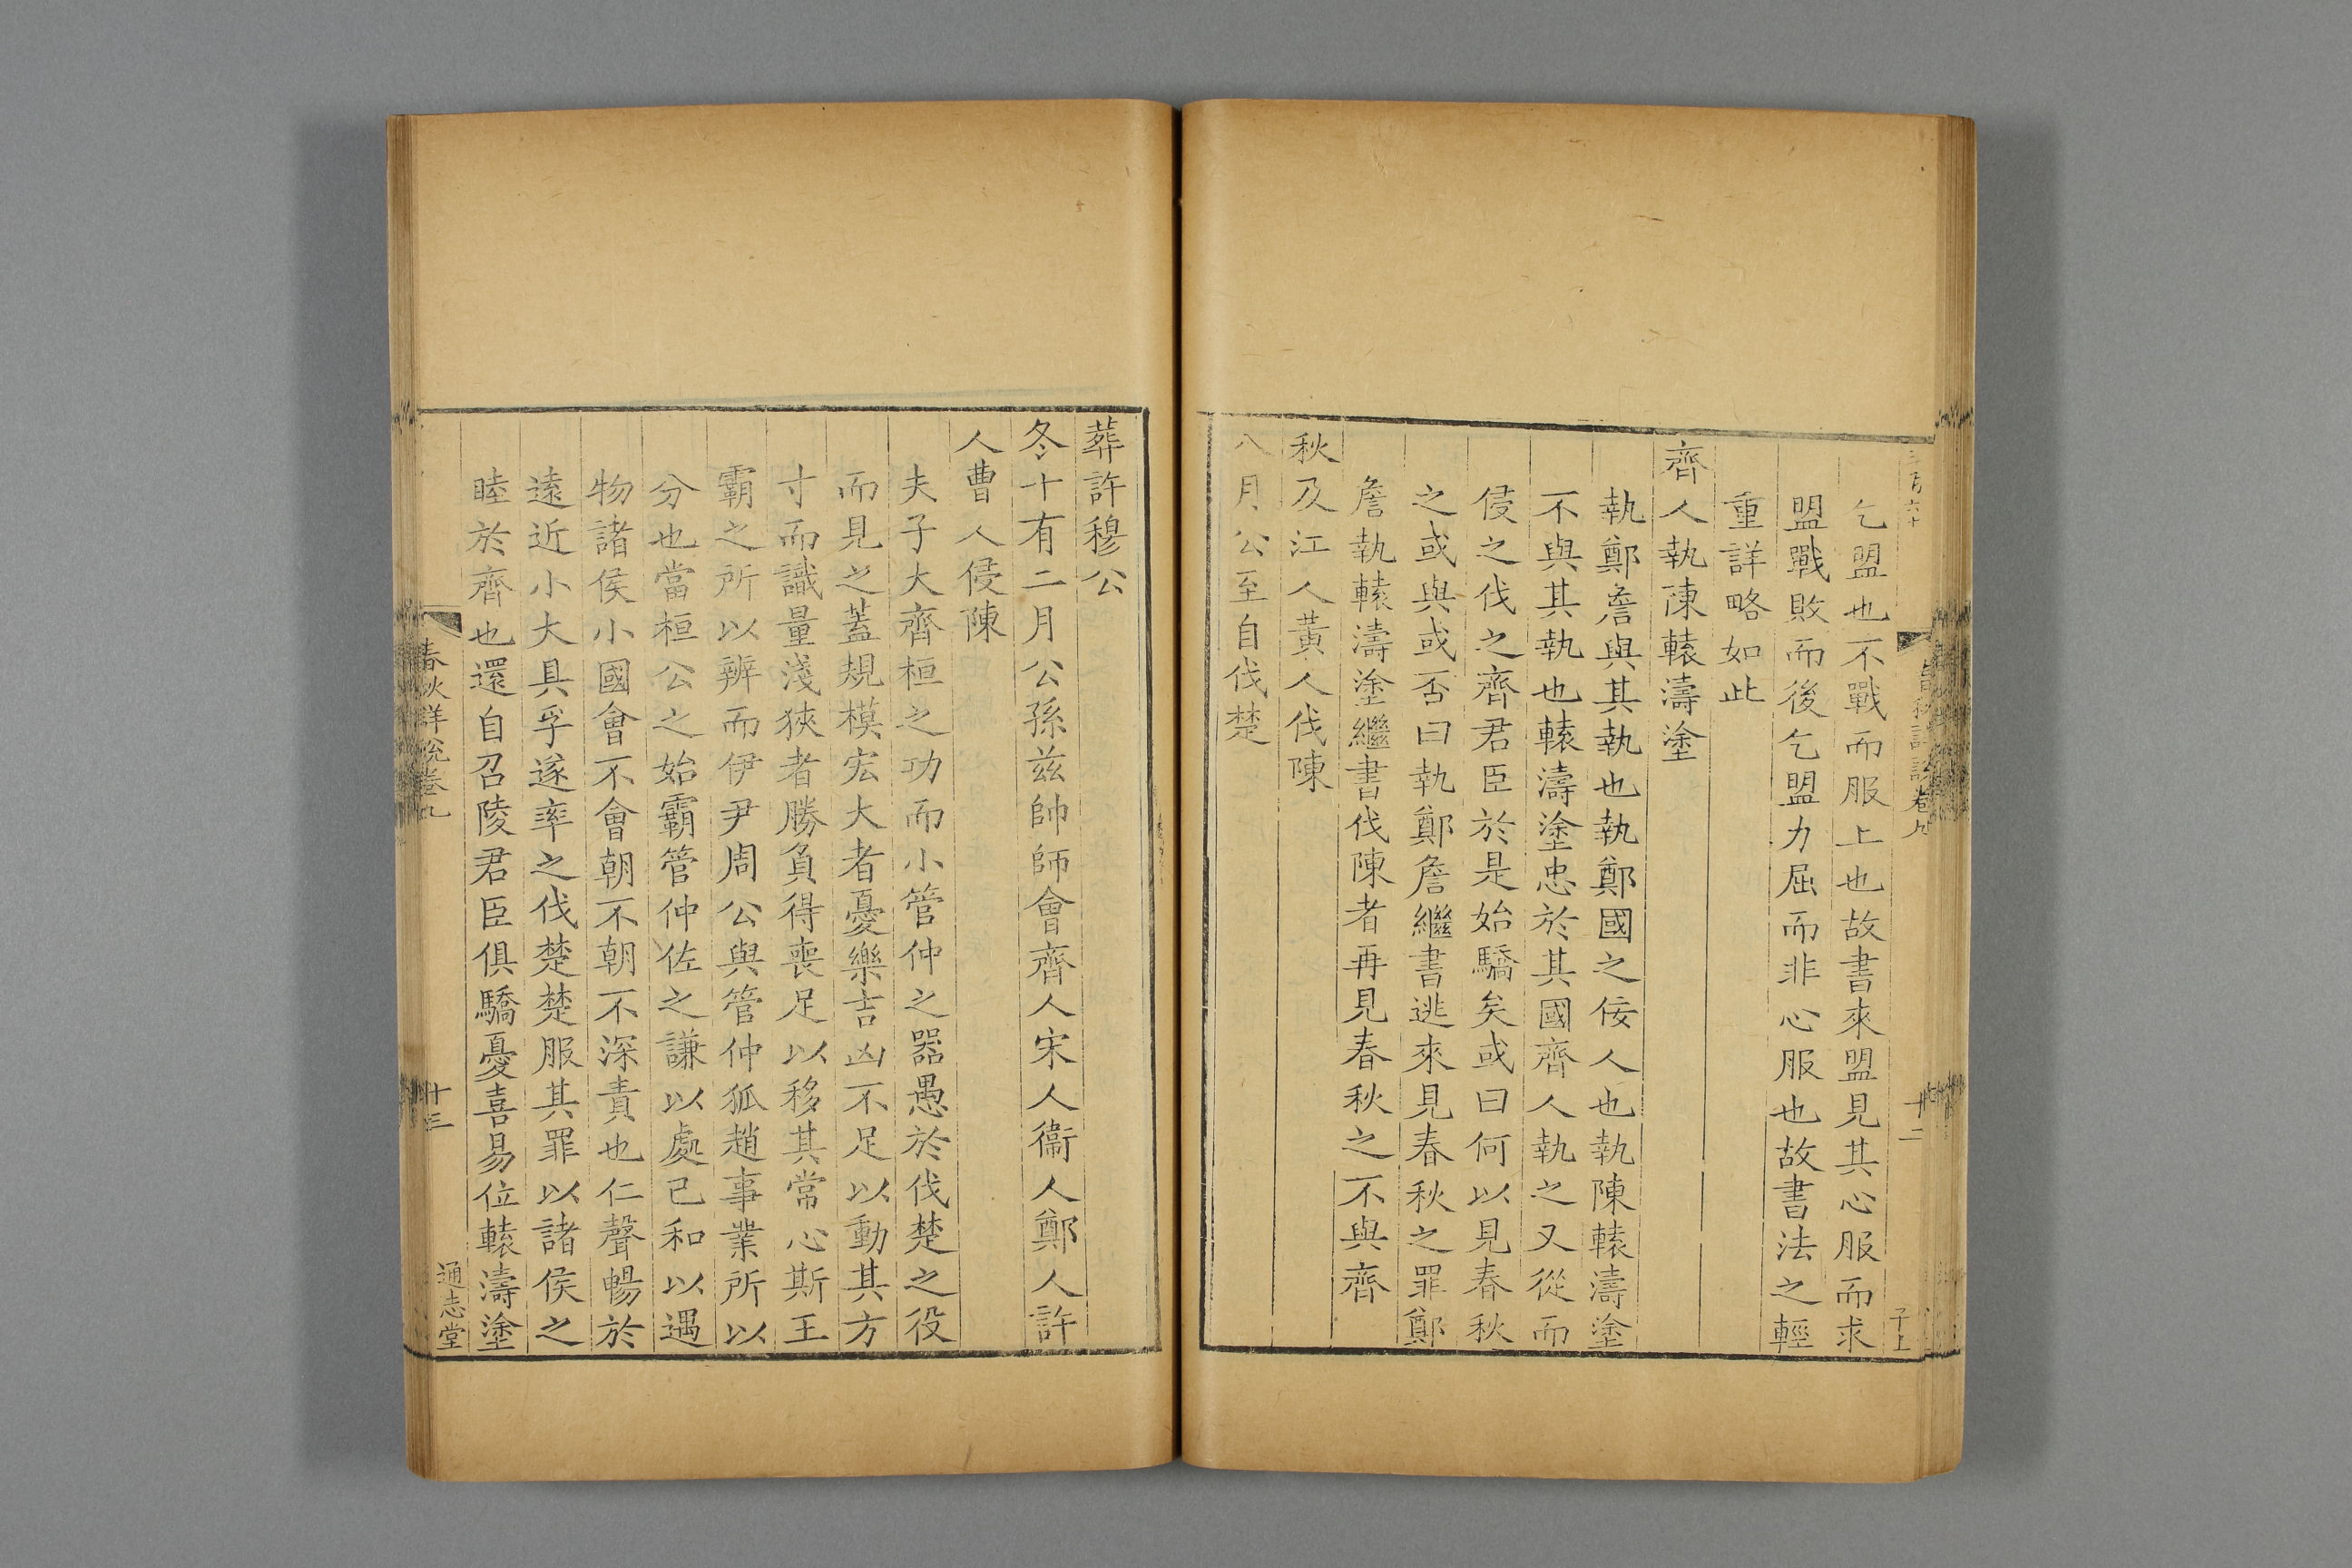 乞盟也不戰而服上也故書來盟見其心服而求
盟戰敗而後乞盟力屈而非心服也故書法之輕
重詳略如此
齊人執陳轅濤塗
執鄭詹與其執也執鄭國之佞人也執陳轅濤塗
不與其執也轅濤塗忠於其國齊人執之又從而
侵之伐之齊君臣於是始驕矣或曰何以見春秋
之或與或否曰執鄭詹繼書逃來見春秋之罪鄭
詹執轅濤塗繼書伐陳者再見春秋之不與齊
秋及江人黃人伐陳
八月公至自伐楚
十二
葬許穆公
冬十有二月公孫茲帥師會齊人宋人衞人鄭人許
人曹人侵陳
夫子大齊桓之功而小管仲之器愚於伐楚之役
而見之蓋規模宏大者憂樂吉凶不足以動其方
寸而識量淺狹者勝負得喪足以移其常心斯王
霸之所以辨而伊尹周公與管仲狐趙事業所以
分也當桓公之始霸管仲佐之謙以處己和以遇
物諸侯小國會不會朝不朝不深責也仁聲暢於
遠近小大具孚遂率之伐楚楚服其罪以諸侯之
睦於齊也還自召陵君臣俱驕憂喜易位轅濤塗
春秋詳說卷九
十三
通志堂